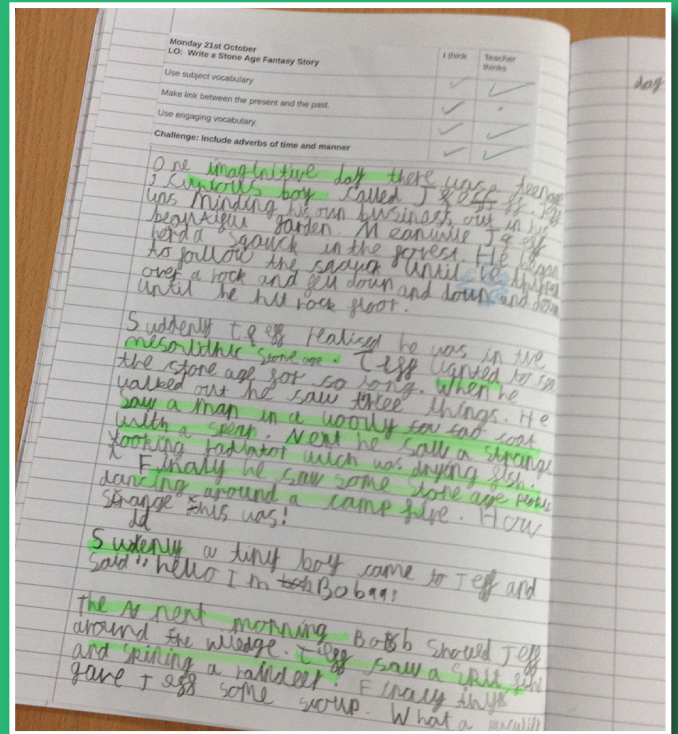 Monday 21st October
LO: Write a Stone Age Fantasy Story
I think
Teacher thinks
Use subject vocabulary
Make link between the present and the past.
Use engaging vocabulary.
Challenge: Include adverbs of time and manner
dog
One imaginitive day there was
curious boy called Jeff.
was minding his own business out in his
beautifull garden. Meanwile Jeff
herd a squack in the forest. He began
to follow the until he
over a rock and fell down and down and down
until he hit rock floor.
Suddenly Jeff realised he was in the
mesolithic stone age. Jeff wanted to see
the stone age for so long. When he
walked out he saw three things. He
saw a man in a wooly coat
with a spear. Next he saw a strange
looking radiator wich was drying fish.
Finaly he saw some stone age people
dancing around a camp fire. How
strange this was!
Sudenly a tiny boy came to Jeff and
dd
said "hello I'm Bob"!
The next morning Bob should Jeff
around the viledge. Jeff saw a
and spining a raindeer. Finaly they
gave Jeff some soup. What a